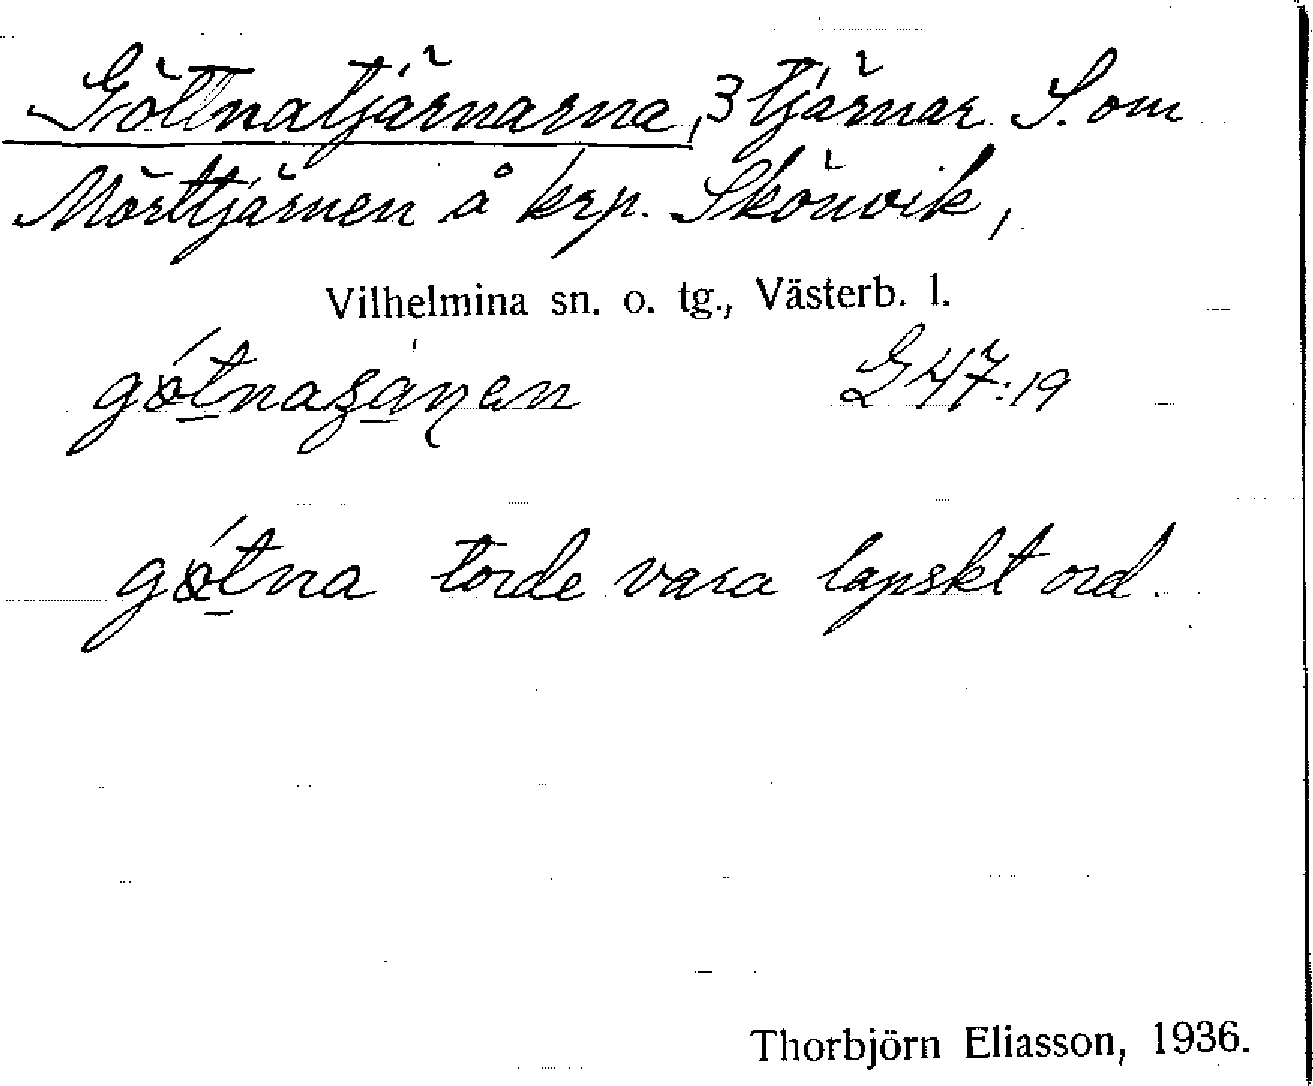 Göttnatjärnarna, 3 tjärnar S. om
Mörttjärnen å krp. Skönvik,
Vilhelmina sn. o. tg., Västerb. l.
G 47:19
torde vara lapskt ord.
Thorbjörn Eliasson, 1936.